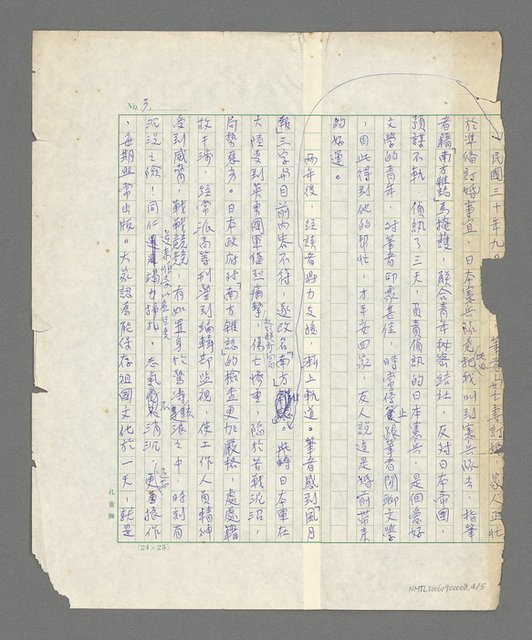 No. 3.
民國三十年九
於準備訂婚事宜,日本憲兵隊竟把我叫到憲兵隊去,指筆
者藉南方雜誌為掩護,聯合青年秘密結社,反對日本帝國,
預謀不軌,偵訊了三天,負責偵訊的日本憲兵,是個愛好
文學的青年,對筆者印象甚佳,時常停止緊張筆者閒聊文學
,因此得到他的幫忙,才平安回家,友人說這是婚前帶來
的好運。
兩年後,經讀者努力支援,漸上軌道。筆者感到「風月
報」三字與目前內容不符,遂改名「南方」。此時日本軍在
大陸受到英勇國軍猛烈痛擊,傷亡慘重,陷於苦戰沉沼,
局勢惡劣。日本政府對「南方雜誌」的檢查更加嚴格,處處藉
故干涉,經常派高等刑警到編輯部監視,使工作人員精神
受到威脅,戰戰兢兢,有如置身於驚濤駭浪之中,時刻有
沉沒之險!同仁竭力掙扎,志氣不消沉,更加振作
,每期照常出版。大眾認為能保存祖國文化於一天,就是
孔雀牌
(24×25)
NMTL20060900008,4/5